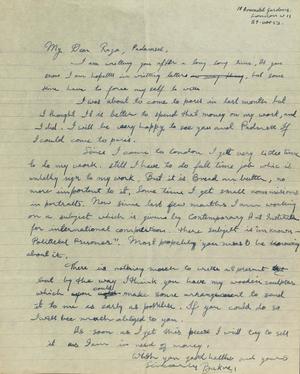 London W 11
My Dear Raza,
I am writting you after a long long time, As you
know I am hopeless in writting letters but some
time have to force my self to write
I was about to come to paris in last month but
I thought It is better to spend that money on my work, and
I did. I will be very happy to see you and
I could come to paris.
Since I came to London I get very little time
to do my work. still I have to do full time job which is
my to my work. But it is Bread an butter, no
more important to it, Some time I get small commissions
in portraits. Now since last few months I am working
on a subject which is given by Contemporary Art Institute
for international competition. There subject is "unknown
Political Prisoner". Most propebly you must be knowing
about it.
There is nothing much to write at present
but by the way I think you have my wooden sculpture
which you could make some arrangement to send
it to me as early as possible. If you could do so
I will be much obliged to you.
As soon as I get this piece I will try to sell
it as I am in need of money.
Wish you good health and yours
Sincerely